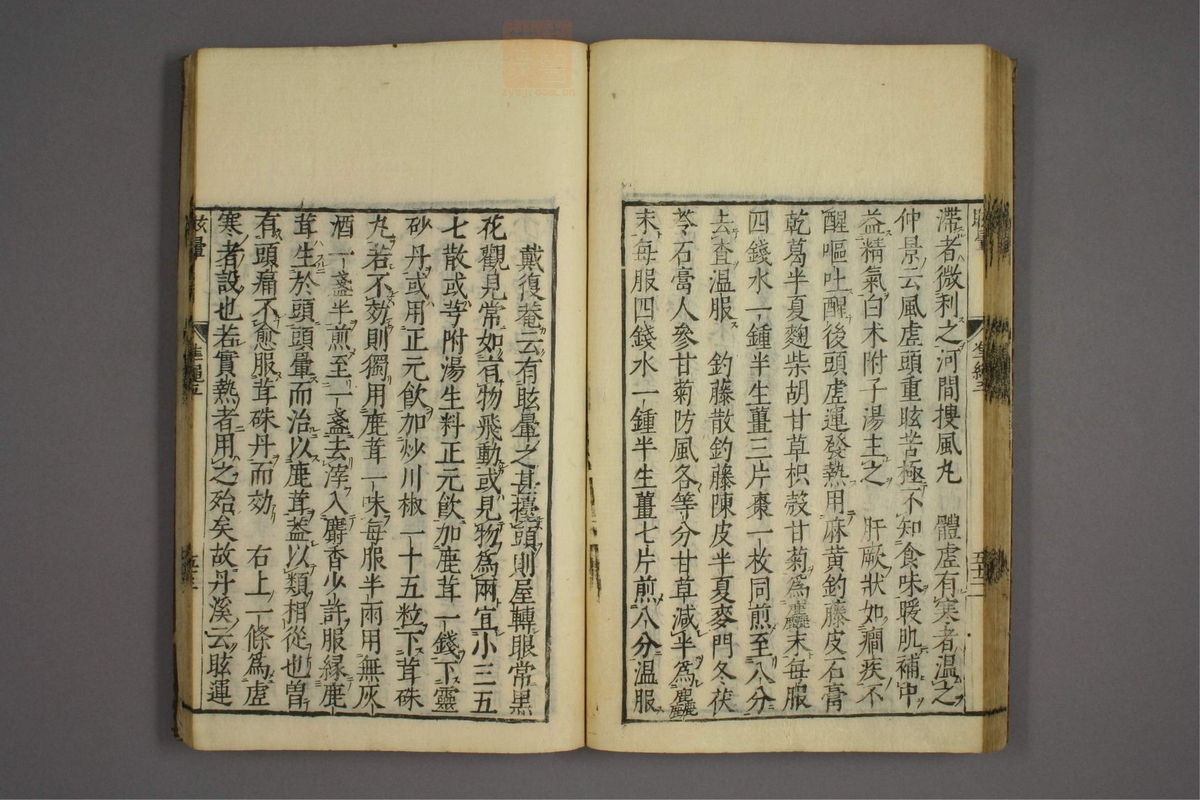 滯者微利之河間搜風丸　體虛有寒者溫之
仲景云風虛頭重眩苦極不知食味暖肌補中
益精氣白术附子湯主之　肝厥狀如癎疾不
醒嘔吐醒後頭虛運發熱用麻黄釣藤皮石膏
乾葛半夏麴柴胡甘草枳殼甘菊爲麤末每服
四錢水一鍾半生薑三片棗一枚同煎至八分
去査溫服　釣藤散釣藤陳皮半夏麥門冬茯
苓石膏人參甘菊防風各等分甘草減半爲麤
末每服四錢水一鍾半生薑七片煎八分溫服
戴復菴云有眩暈之甚擡頭則屋轉眼常黑
花觀見常如有物飛動或見物爲兩宜小三五
七散或芎附湯生料正元飮加鹿茸一錢下靈
砂丹或用正元飮加炒川椒一十五粒下茸硃
丸若不効則獨用鹿茸一味每服半兩用無灰
酒一盞半煎至一盞去滓入麝香少許服緣鹿
茸生於頭頭暈而治以鹿茸蓋以類相從也曽
有頭痛不愈服茸硃丹而効　右上一條爲虛
寒者設也若實熱者用之殆矣故丹溪云眩運